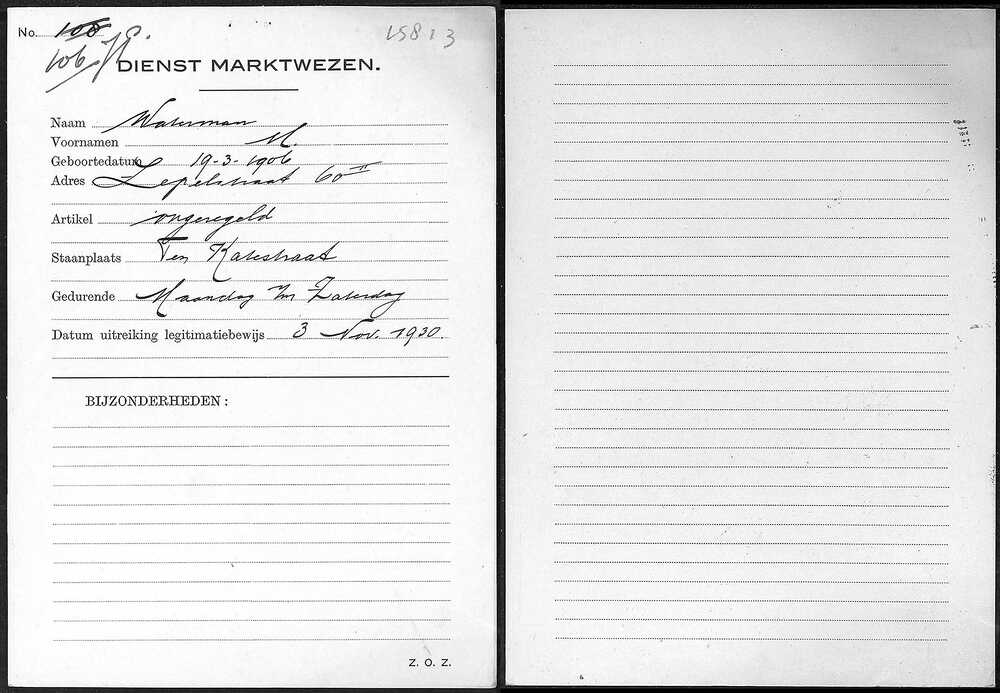 No. 108
106
15813
DIENST MARKTWEZEN.
Naam Waterman
Voornamen M.
Geboortedatum 19-3-1906
Adres Lepelstraat 60 II
Artikel ongeregeld
Staanplaats Ten Katestraat
Gedurende Maandag t/m Zaterdag
Datum uitreiking legitimatiebewijs 3 Nov. 1930.
BIJZONDERHEDEN:
Z. O. Z.